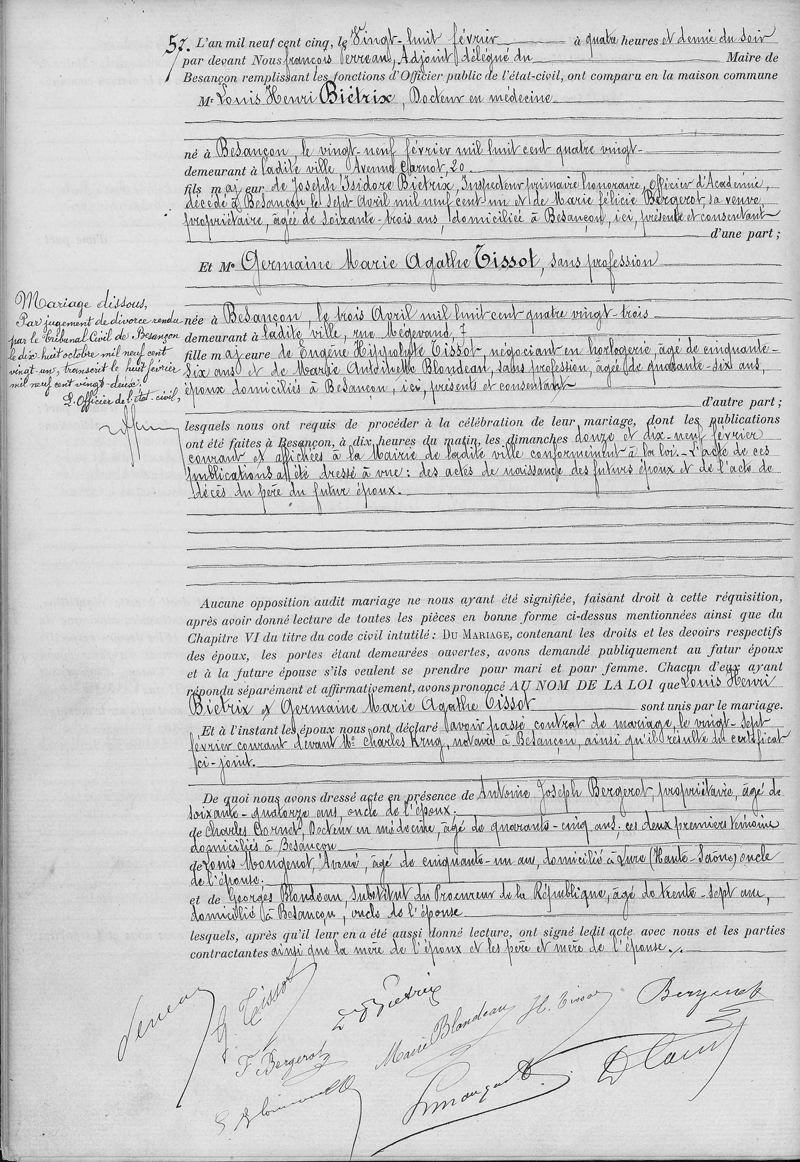 57. L'an mil neuf cent cinq, le Vingt-huit février à quatre heures et demie du soir
par devant Nous françois Perreau, Adjoint délégué du Maire de
Besançon remplissant les fonctions d'Officier public de l'état-civil, ont comparu en la maison commune
Mr Louis Henri Biétrix, Docteur en médecine
né à Besançon, le vingt-neuf février mil huit cent quatre vingt-
demeurant à ladite ville Avenue Carnot, 20
fils majeur de Joseph Isidore Biétrix, Inspecteur primaire honoraire, officier d'Académie,
décédé à Besançon, le sept Avril mil neuf cent un et de Marie félicie Bergerot, sa veuve,
propriétaire, âgée de soixante-trois ans, domiciliée à Besançon, ici, présente et consentant
d'une part;
Et Me Germaine Marie Agathe Tissot, sans profession
Mariage dissous,
Par jugement de divorce rendu
par le Tribunal Civil de Besançon
le dix-huit octobre mil neuf cent
vingt-un, transcrit le huit février
mil neuf cent vingt-deux.
L'Officier de l'état-civil,
née à Besançon, le trois Avril mil huit cent quatre vingt-trois
demeurant à ladite ville, rue Mégevand, 7
fille majeure de Eugène Hippolyte Tissot, négociant en horlogerie, âgé de cinquante-
six ans et de Marie Antoinette Blondeau, sans profession, âgée de quarante-six ans,
époux domiciliés à Besançon, ici, présents et consentant
d'autre part;
lesquels nous ont requis de procéder à la célébration de leur mariage, dont les publications
ont été faites à Besançon, à dix heures du matin, les dimanches douze et dix-neuf février
courant et affichées à la Mairie de ladite ville conformément à la loi.- L'acte de ces
publications a été dressé à vue: des actes de naissance des futurs époux et de l'acte de
décès du père du futur époux.
Aucune opposition audit mariage ne nous ayant été signifiée, faisant droit à cette réquisition,
après avoir donné lecture de toutes les pièces en bonne forme ci-dessus mentionnées ainsi que du
Chapitre VI du titre du code civil intitulé: DU MARIAGE, contenant les droits et les devoirs respectifs
des époux, les portes étant demeurées ouvertes, avons demandé publiquement au futur époux
et à la future épouse s'ils veulent se prendre pour mari et pour femme. Chacun d'eux ayant
répondu séparément et affirmativement, avons prononcé AU NOM DE LA LOI que Louis Henri
Biétrix et Germaine Marie Agathe Tissot sont unis par le mariage.
Et à l'instant les époux nous ont déclaré avoir passé contrat de mariage, le vingt-sept
février courant devant Me Charles Krug, notaire à Besançon, ainsi qu'il résulte du certificat
ci-joint.
De quoi nous avons dressé acte en présence de Antoine Joseph Bergerot, propriétaire, âgé de
soixante-quatorze ans, oncle de l'époux;
de Charles Cornet, Docteur en médecine, âgé de quarante-cinq ans; ces deux premiers témoins
domiciliés à Besançon
de Louis Mougenot, Avoué, âgé de cinquante-un ans, domicilié à Lure (Haute-Saône) oncle
de l'épouse.
et de Georges Blondeau, Substitut du Procureur de la République, âgé de trente-sept ans,
domicilié à Besançon, oncle de l'épouse
lesquels, après qu'il leur en a été aussi donné lecture, ont signé ledit acte avec nous et les parties
contractantes ainsi que la mère de l'époux et les père et mère de l'épouse.
G. Tissot
Dr Biétrix
F. Bergerot
Marie Blondeau
H. Tissot
Bergerot